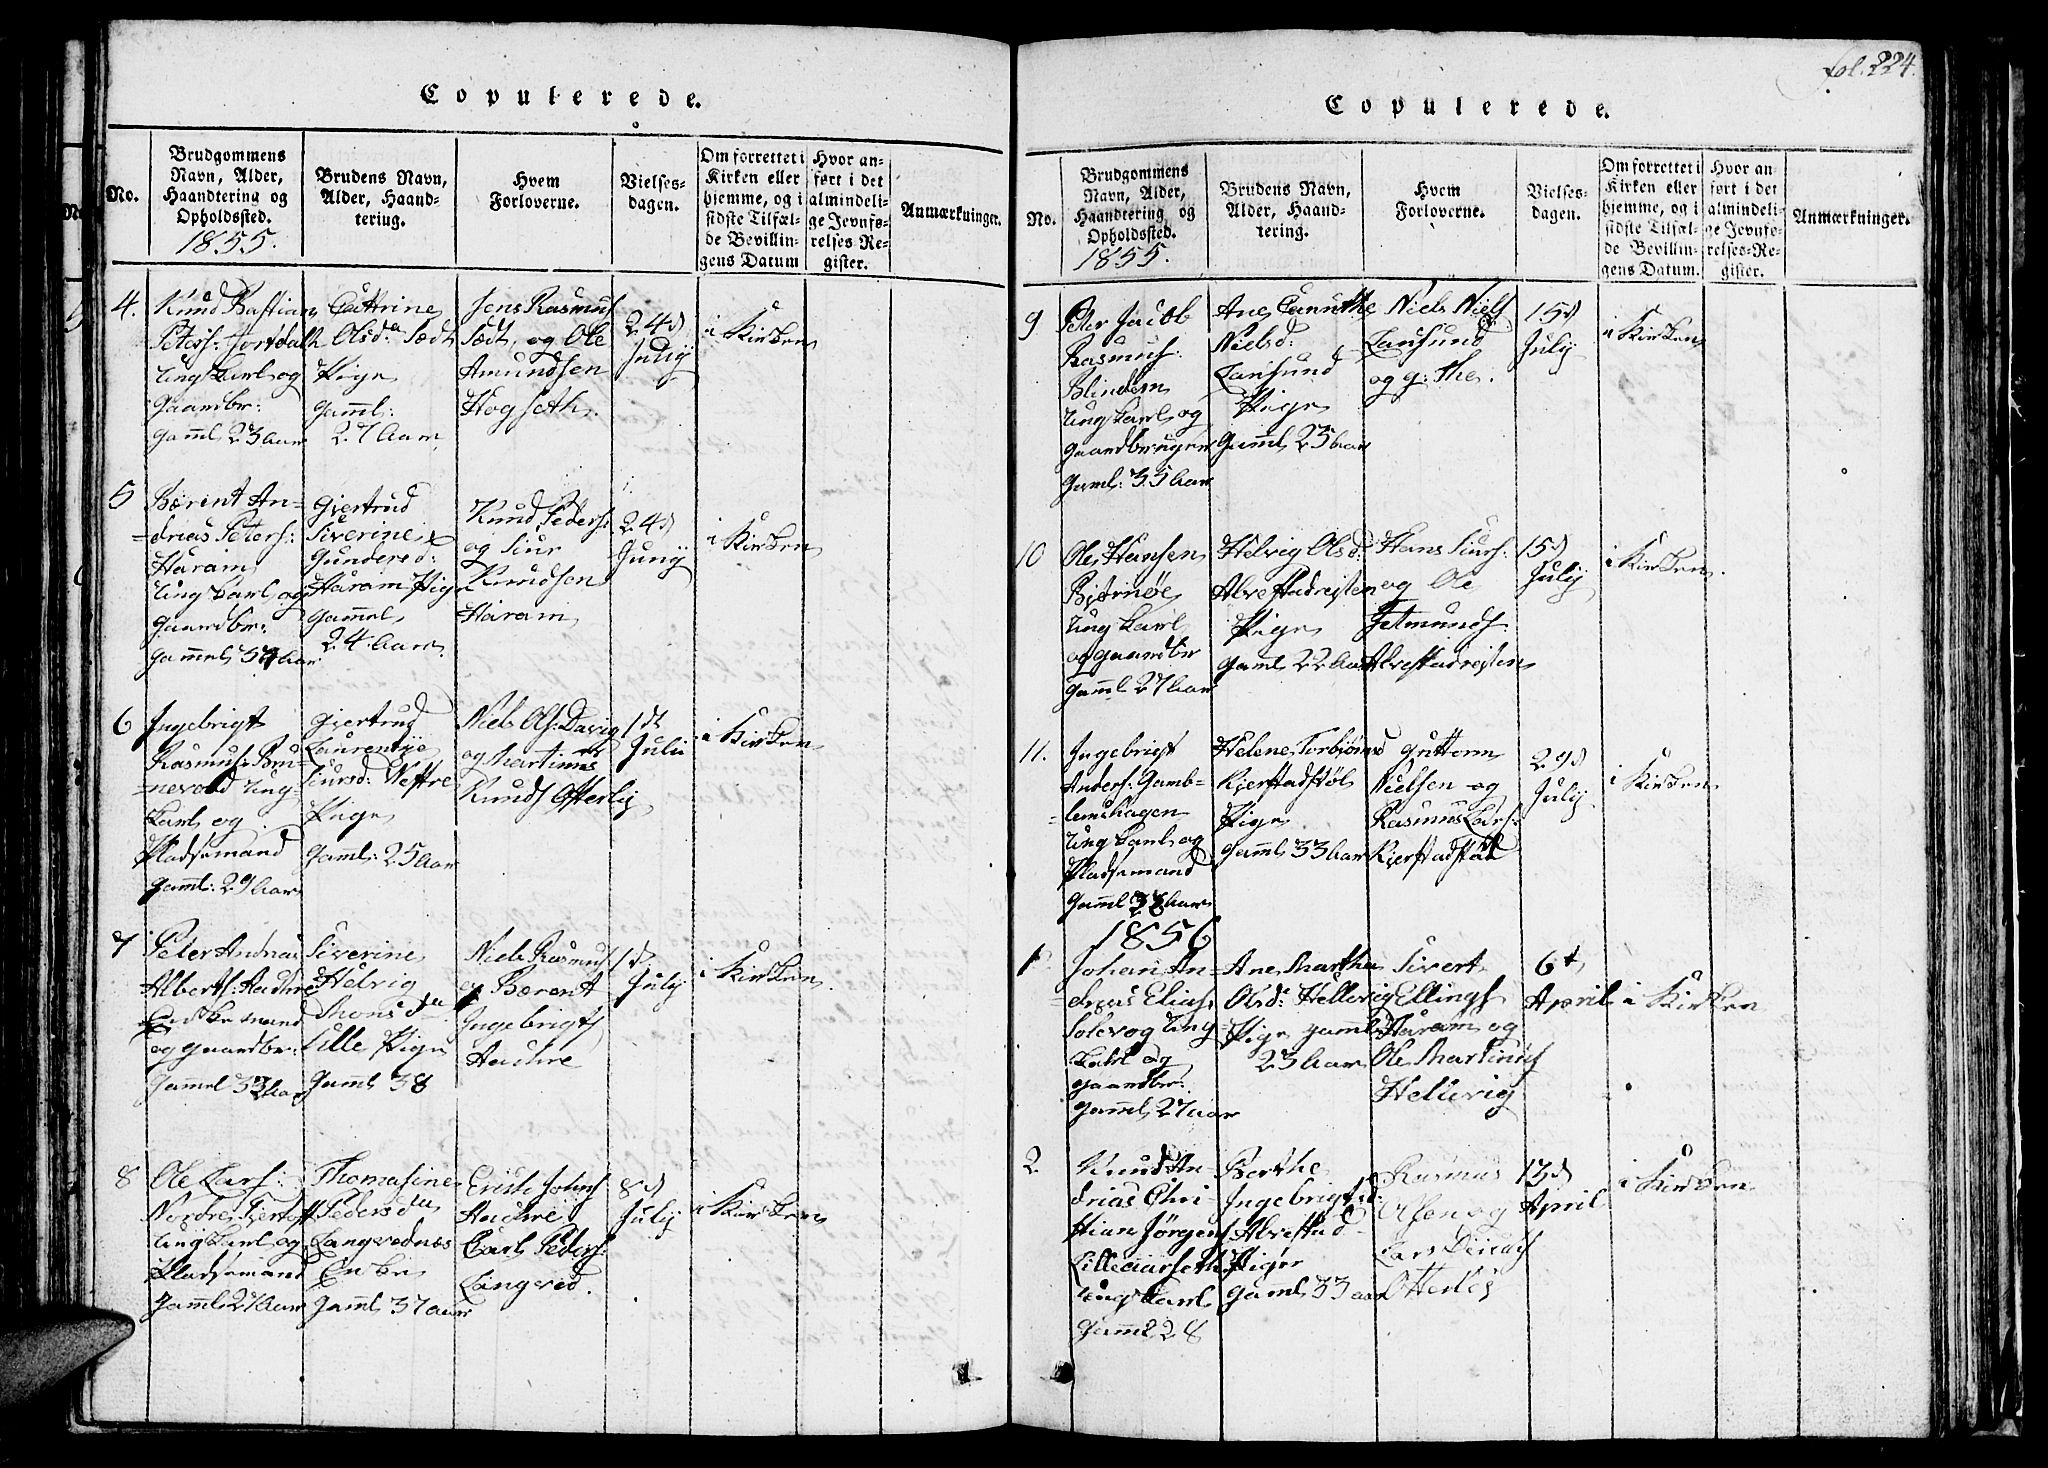 Copulerede.
No.
Brudgommens Navn, Alder, Haandtering og Opholdssted.
1855.
Brudens Navn, Alder, Haandteriug.
Hvem Forloverne.
Vielsesdagen.
Om forrettet i Kirken eller hjemme, og i sidste Tilfælde Bevillingens Datum
Hvor anført i det almindelige Jevnførelses-Register.
Anmærkninger.
4.
Knud Bastian
Peters: Fjortdalh
Ung Karl og
Gaardbr:
Gaml 23 Aar
Cathrine
Olsda Sædt
Pige
Gaml:
27 Aar
Jens Rasmus
Sædt, og Ole
Amundsen
Hogseth.
24d
July
i Kirken
5
Bærent An-
drias Peters:
Haram
Ung Karl og
Gaardbr:
Gammel 34 Aar
Gjertrud
Siverine
Gundersd:
Haram Pige
Gammel
24 Aar
Knud Peders:
og Siur
Knudsen
Haram
24d
Juny
i Kirken
6
Ingebrigt
Rasmus:
nevold Ung-
Karl og
Pladsemand
Gaml: 29 Aar
Gjertrud
Laurentze
Siursd: Vestre
Pige
Gaml: 25 Aar
Niels Ols: Davig
og Martinus
Knuds Østerlig
1d
Julii
i Kirken
7
Peter Andreas
Alberts: Aachre
Enkemand
og Gaardbr:
Gammel 33 Aar
Siverine
Helvig
Thomsda
Lille Pige
Gaml 38
Niels Rasmus
og Bærent
Ingebrigts
Aachre
1d
July
i Kirken
8
Ole Lars:
Nordre Fjertoft
Ung Karl og
Pladsemand
Gaml 27 Aar
Thomasine
Pedersda
Langvednæs
Enke
Gaml 37 Aar
Erich Johns
Aachre
Carl Peders:
Langved.
8d
July
i Kirken
fol. 224.
Copulerede.
No.
Brudgommens Navn, Alder, Haandtering og Opholdssted.
1855.
Brudens Navn, Alder, Haandtering.
Hvem Forloverne.
Vielsesdagen.
Om forrettet i Kirken eller hjemme, og i sidste Tilfælde Bevillingens Datum.
Hvor anført i det almindelige Jevnførelses-Register.
Anmærkninger.
9
Peter Jacob
Rasmus:
Blindem
Ung Karl og
Gaardbruger
Gaml: 35 Aar
Ane Canuthe
Nielsd:
Longsund
Pige
Gaml 23 Aar
Niels Niels
og
15d
July
i Kirken
10
Ole Hansen
Bjørnøe
Ung Karl
og Gaardbr
Gaml 27 Aar
Helvig Olsd:
Alvestadrejten
Pige
Gaml 22 Aar
Hans Siurs:
og Ole
Jetmunds
Alvestadrejten
15d
July
i Kirken.
11.
Ingebrigt
Anders: Gamb-
lemshagen
Ung Karl og
Pladsemand
Gaml 38 Aar
Helene Torbjørnsd
Kjerstadstøl
Pige
Gaml 33 Aar
Guttorm
Nielsen og
Rasmus Lars:
Kjerstadstøl
29d
July
i Kirken
1856
1
Johan An-
drias Elias
Søevog Ung-
Karl og
Gaardbr:
Gaml 27 Aar
Ane Martha
Olsd: Hellevig
Pige Gaml
23 Aar
Sivert
Ellings
Haram og
Ole Martinus
Hellevig
6t
April
i Kirken
2.
Knud An-
drias Chri-
stian Jørgens
Lilleaarseth
Ung Karl
Gaml 28
Berthe
Ingebrigtsd:
Alvestad
Pige
Gaml 33 Aar
Rasmus
Olsen og
Lars
Otterlei
13d
April
i Kirken